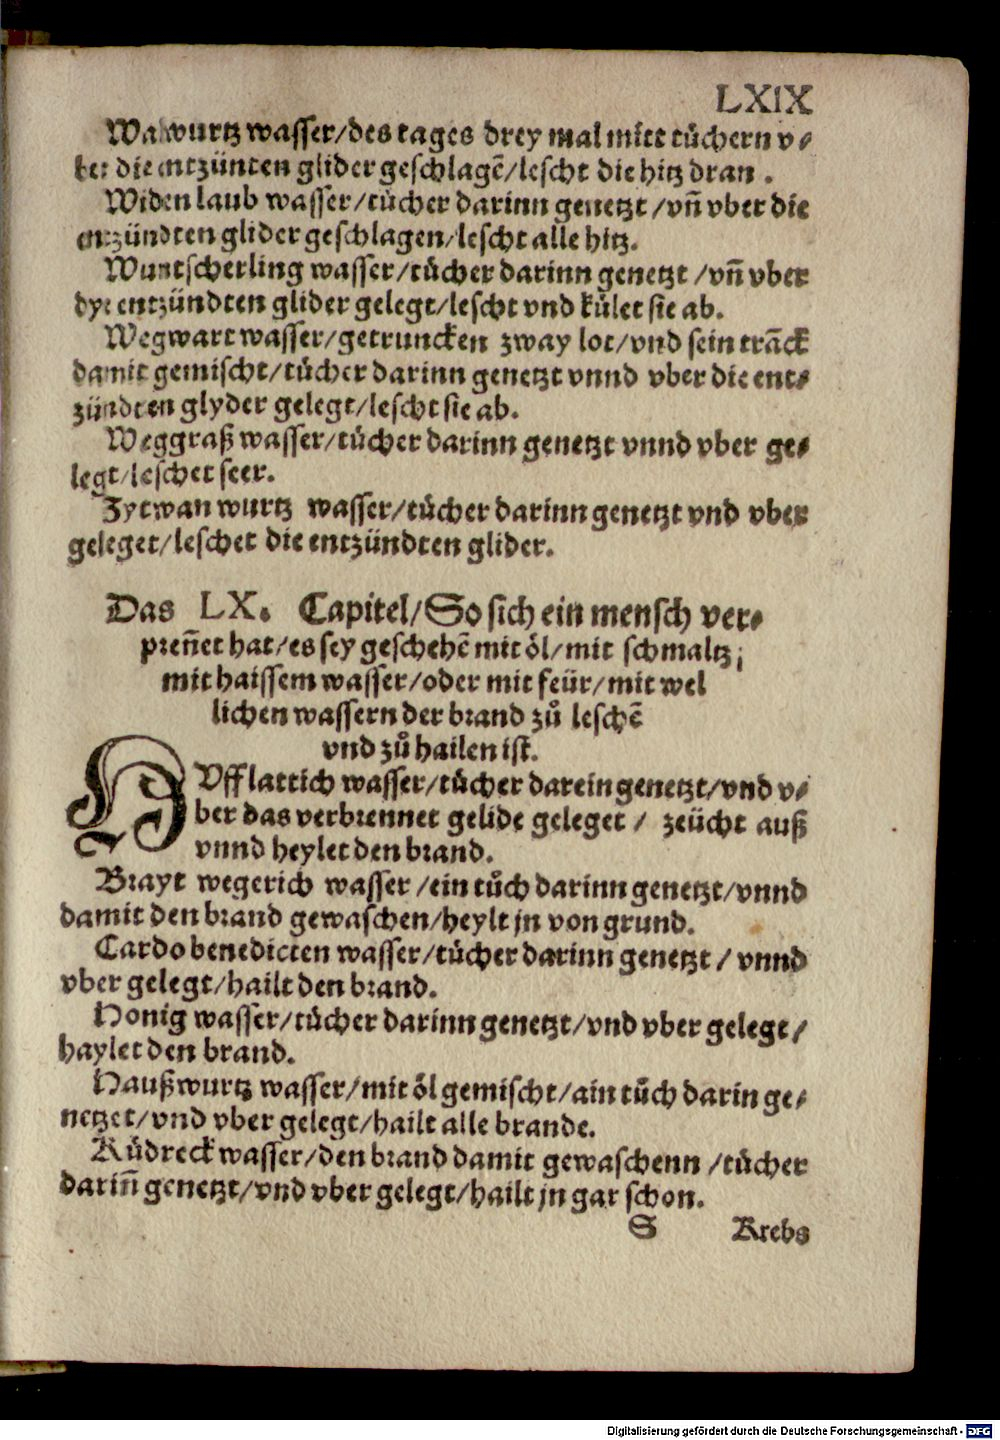 LXIX
Walwurtz wasser/des tages drey mal mitt tůchern v⸗
ber die entzünten glider geschlagē/lescht die hitz dran .
Widen laub wasser/tůcher darinn genetzt/vñ vber die
entzündten glider geschlagen/lescht alle hitz.
Wuntscherling wasser/tůcher darinn genetzt/vñ vber
dye entzündten glider gelegt/lescht vnd kůlet sie ab.
Wegwart wasser/getruncken zway lot/vnd sein trāck
damit gemischt/tůcher darinn genetzt vnnd vber die ent⸗
zündten glyder gelegt/lescht sie ab.
Weggraß wasser/tůcher darinn genetzt vnnd vber ge⸗
legt/leschet seer.
Zytwan wurtz wasser/tůcher darinn genetzt vnd vber
geleget/leschet die entzündten glider.
Das LX. Capitel/So sich ein mensch ver⸗
preñet hat/es sey geschehē mit ől/mit schmaltz/
mit haissem wasser/oder mit feür/mit wel
lichen wassern der brand zů leschē
vnd zů hailen ist.
HVfflattich wasser/tůcher darein genetzt/vnd v⸗
ber das verbrennet gelide geleget / zeücht auß
vnnd heylet den brand.
Brayt wegerich wasser/ein tůch darinn genetzt/vnnd
damit den brand gewaschen/heylt jn von grund.
Cardo benedicten wasser/tůcher darinn genetzt/ vnnd
vber gelegt/hailt den brand.
Honig wasser/tůcher darinn genetzt/vnd vber gelegt/
haylet den brand.
Haußwurtz wasser/mit ől gemischt/ain tůch darin ge⸗
netzet/vnd vber gelegt/hailt alle brande.
Kůdreck wasser/den brand damit gewaschenn/tůcher
dariñ genetzt/vnd vber gelegt/hailt jn gar schon.
S Krebs
Digitalisierung gefördert durch die Deutsche Forschungsgemeinschaft - DFG